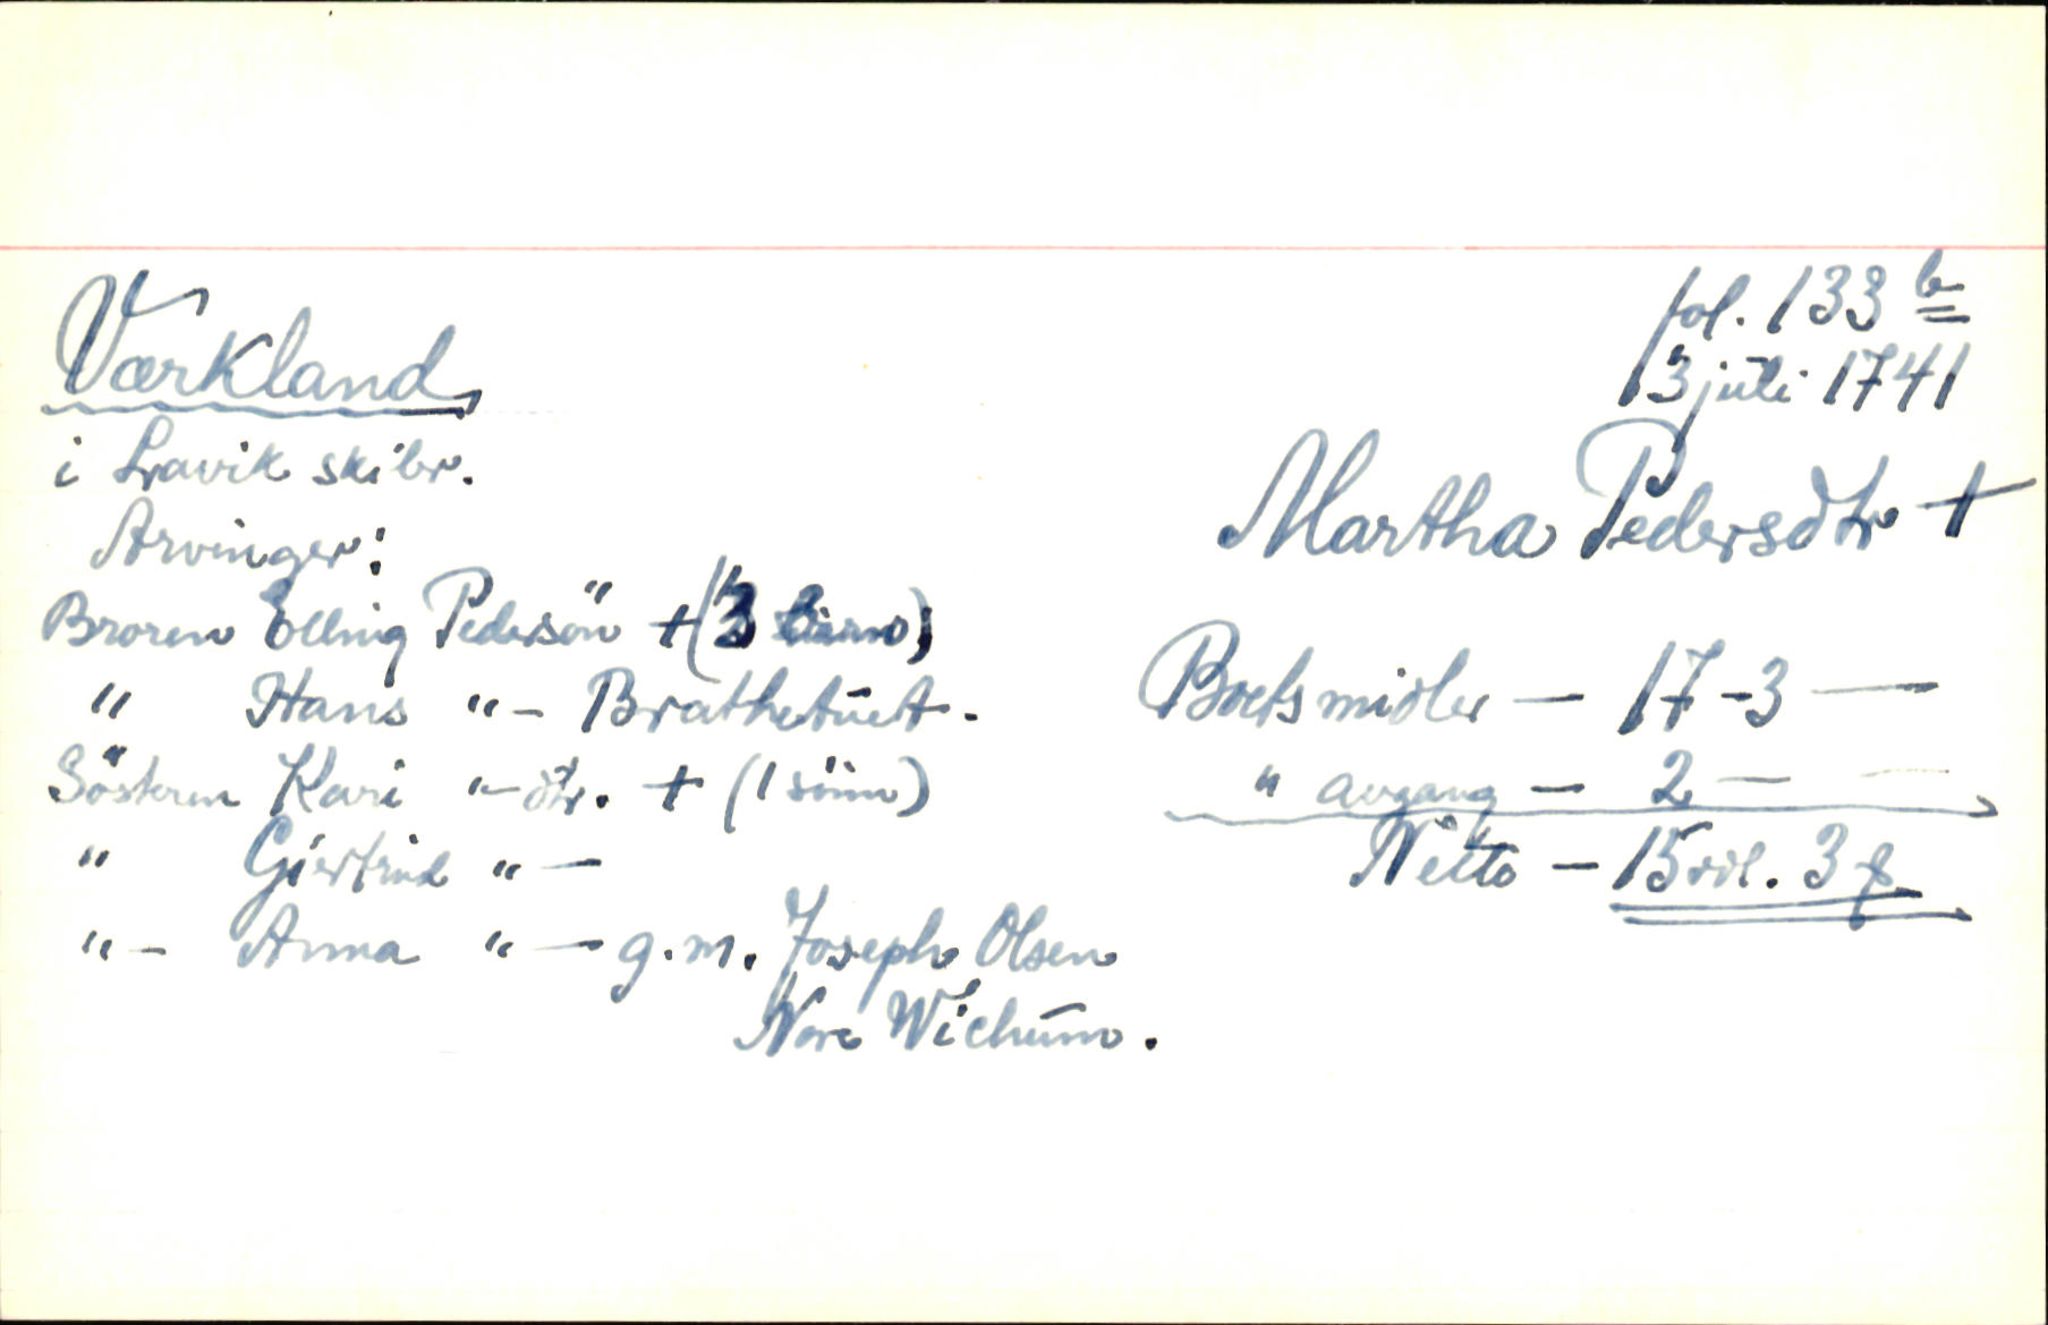 fol. 133 b
Værkland
13 juli 1741
i Lavik skibr.
Martha Pedersdtr +
Arvinger:
Broren Elling Pedersön + (3 barn)
" Hans "- Brathetuet.
Søsteren Kari "-dtr. + (1 sönn)
" Giertrud "-
"- Anna "- g.m. Joseph Olsen
Nore Wichum.
Boets midler - 17-3 -
" avgang - 2 - -
Netto - 15 rdl. 3